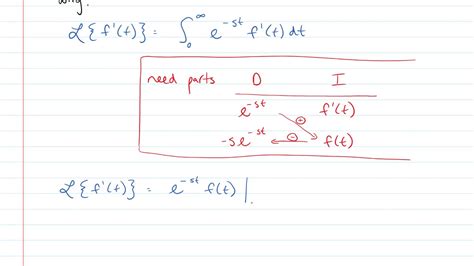 why?
ℒ{f'(t)} = ∫₀^∞ e^{-st} f'(t) dt
need parts D I
e^{-st} ⊕ f'(t)
-se^{-st} ⊖ f(t)
ℒ{f'(t)} = e^{-st} f(t) |